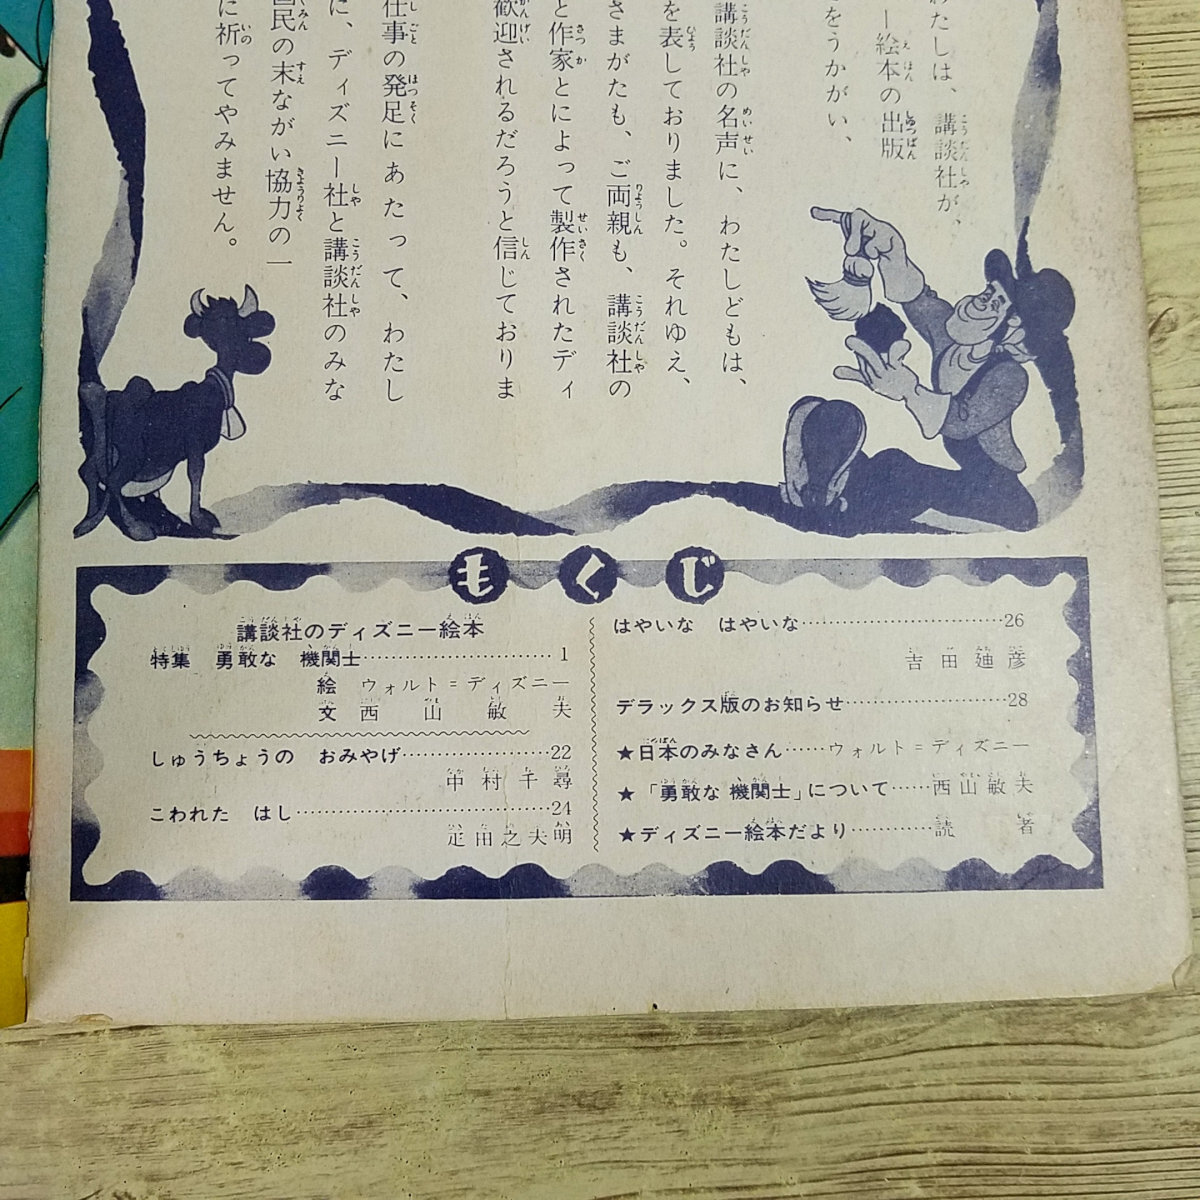 わたしは、講談社が、
ー絵本の出版
をうかがい、
講談社の名声に、わたしどもは、
を表しておりました。それゆえ、
さまがたも、ご両親も、講談社の
と作家とによって製作されたディ
歓迎されるだろうと信じておりま
仕事の発足にあたって、わたし
に、ディズニー社と講談社のみな
国民の末ながい協力の一
に祈ってやみません。
もくじ
講談社のディズニー絵本
特集 勇敢な 機関士…………………………1
絵 ウォルト=ディズニー
文 西山敏夫
しゅうちょうの おみやげ………………22
中村千尋
こわれた はし…………………………24
疋田之夫明
はやいな はやいな…………………………26
吉田廸彦
デラックス版のお知らせ………………28
★日本のみなさん……ウォルト=ディズニー
★「勇敢な 機関士」について……西山敏夫
★ディズニー絵本だより…………読者